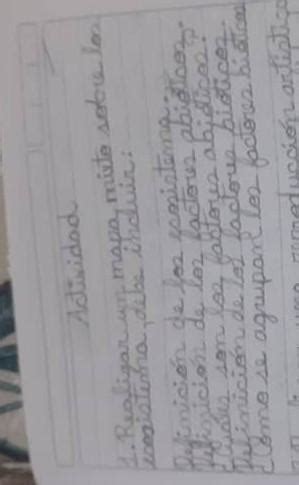 Actividad
1. Realizar un mapa mixto sobre los
ecosistema, debe incluir:
Definición de los ecosistema.
Definición de los factores abióticos.
Cuales son los factores abióticos?
Definición de los factores bióticos
Como se agrupan los factores bióticos
una reproducción artística